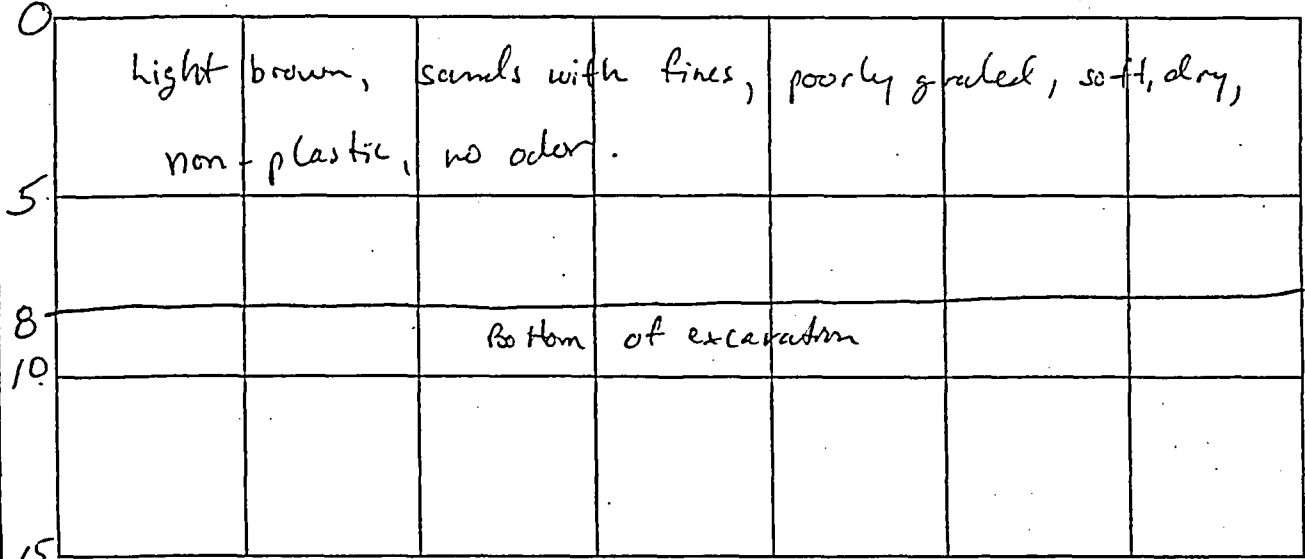 0
Light brown, sands with fines, poorly graded, soft, dry,
non-plastic, no odor.
5
8
Bottom of excavation
10
15